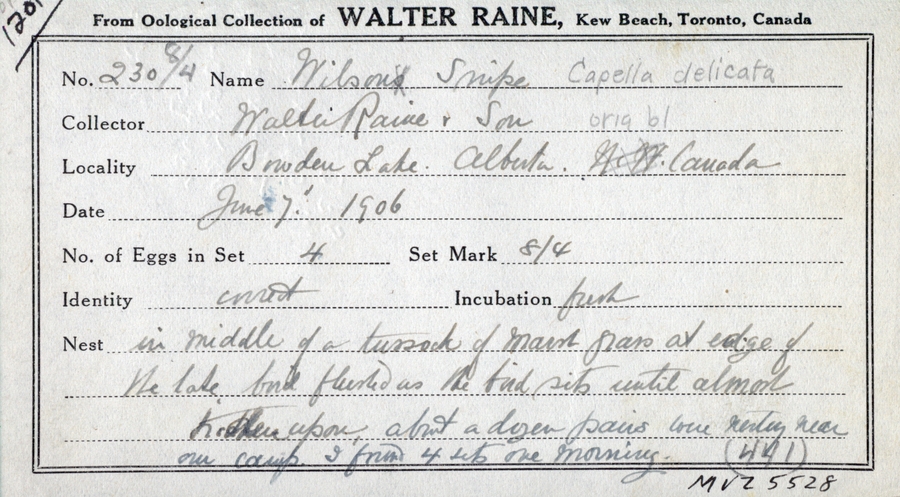 1201
From Oological Collection of WALTER RAINE, Kew Beach, Toronto, Canada
No. 230 8/4 Name Wilson's Snipe Capella delicata
Collector Walter Raine & Son orig bl
Locality Bowden Lake. Alberta. N.W. Canada
Date June 7. 1906
No. of Eggs in Set 4 Set Mark 8/4
Identity correct Incubation fresh
Nest in middle of a tussock of marsh grass at edge of
the lake, bird flushed as the bird sits until almost
trodden upon, about a dozen pairs were nesting near
our camp. I found 4 sets one morning. (441)
MVZ 5528